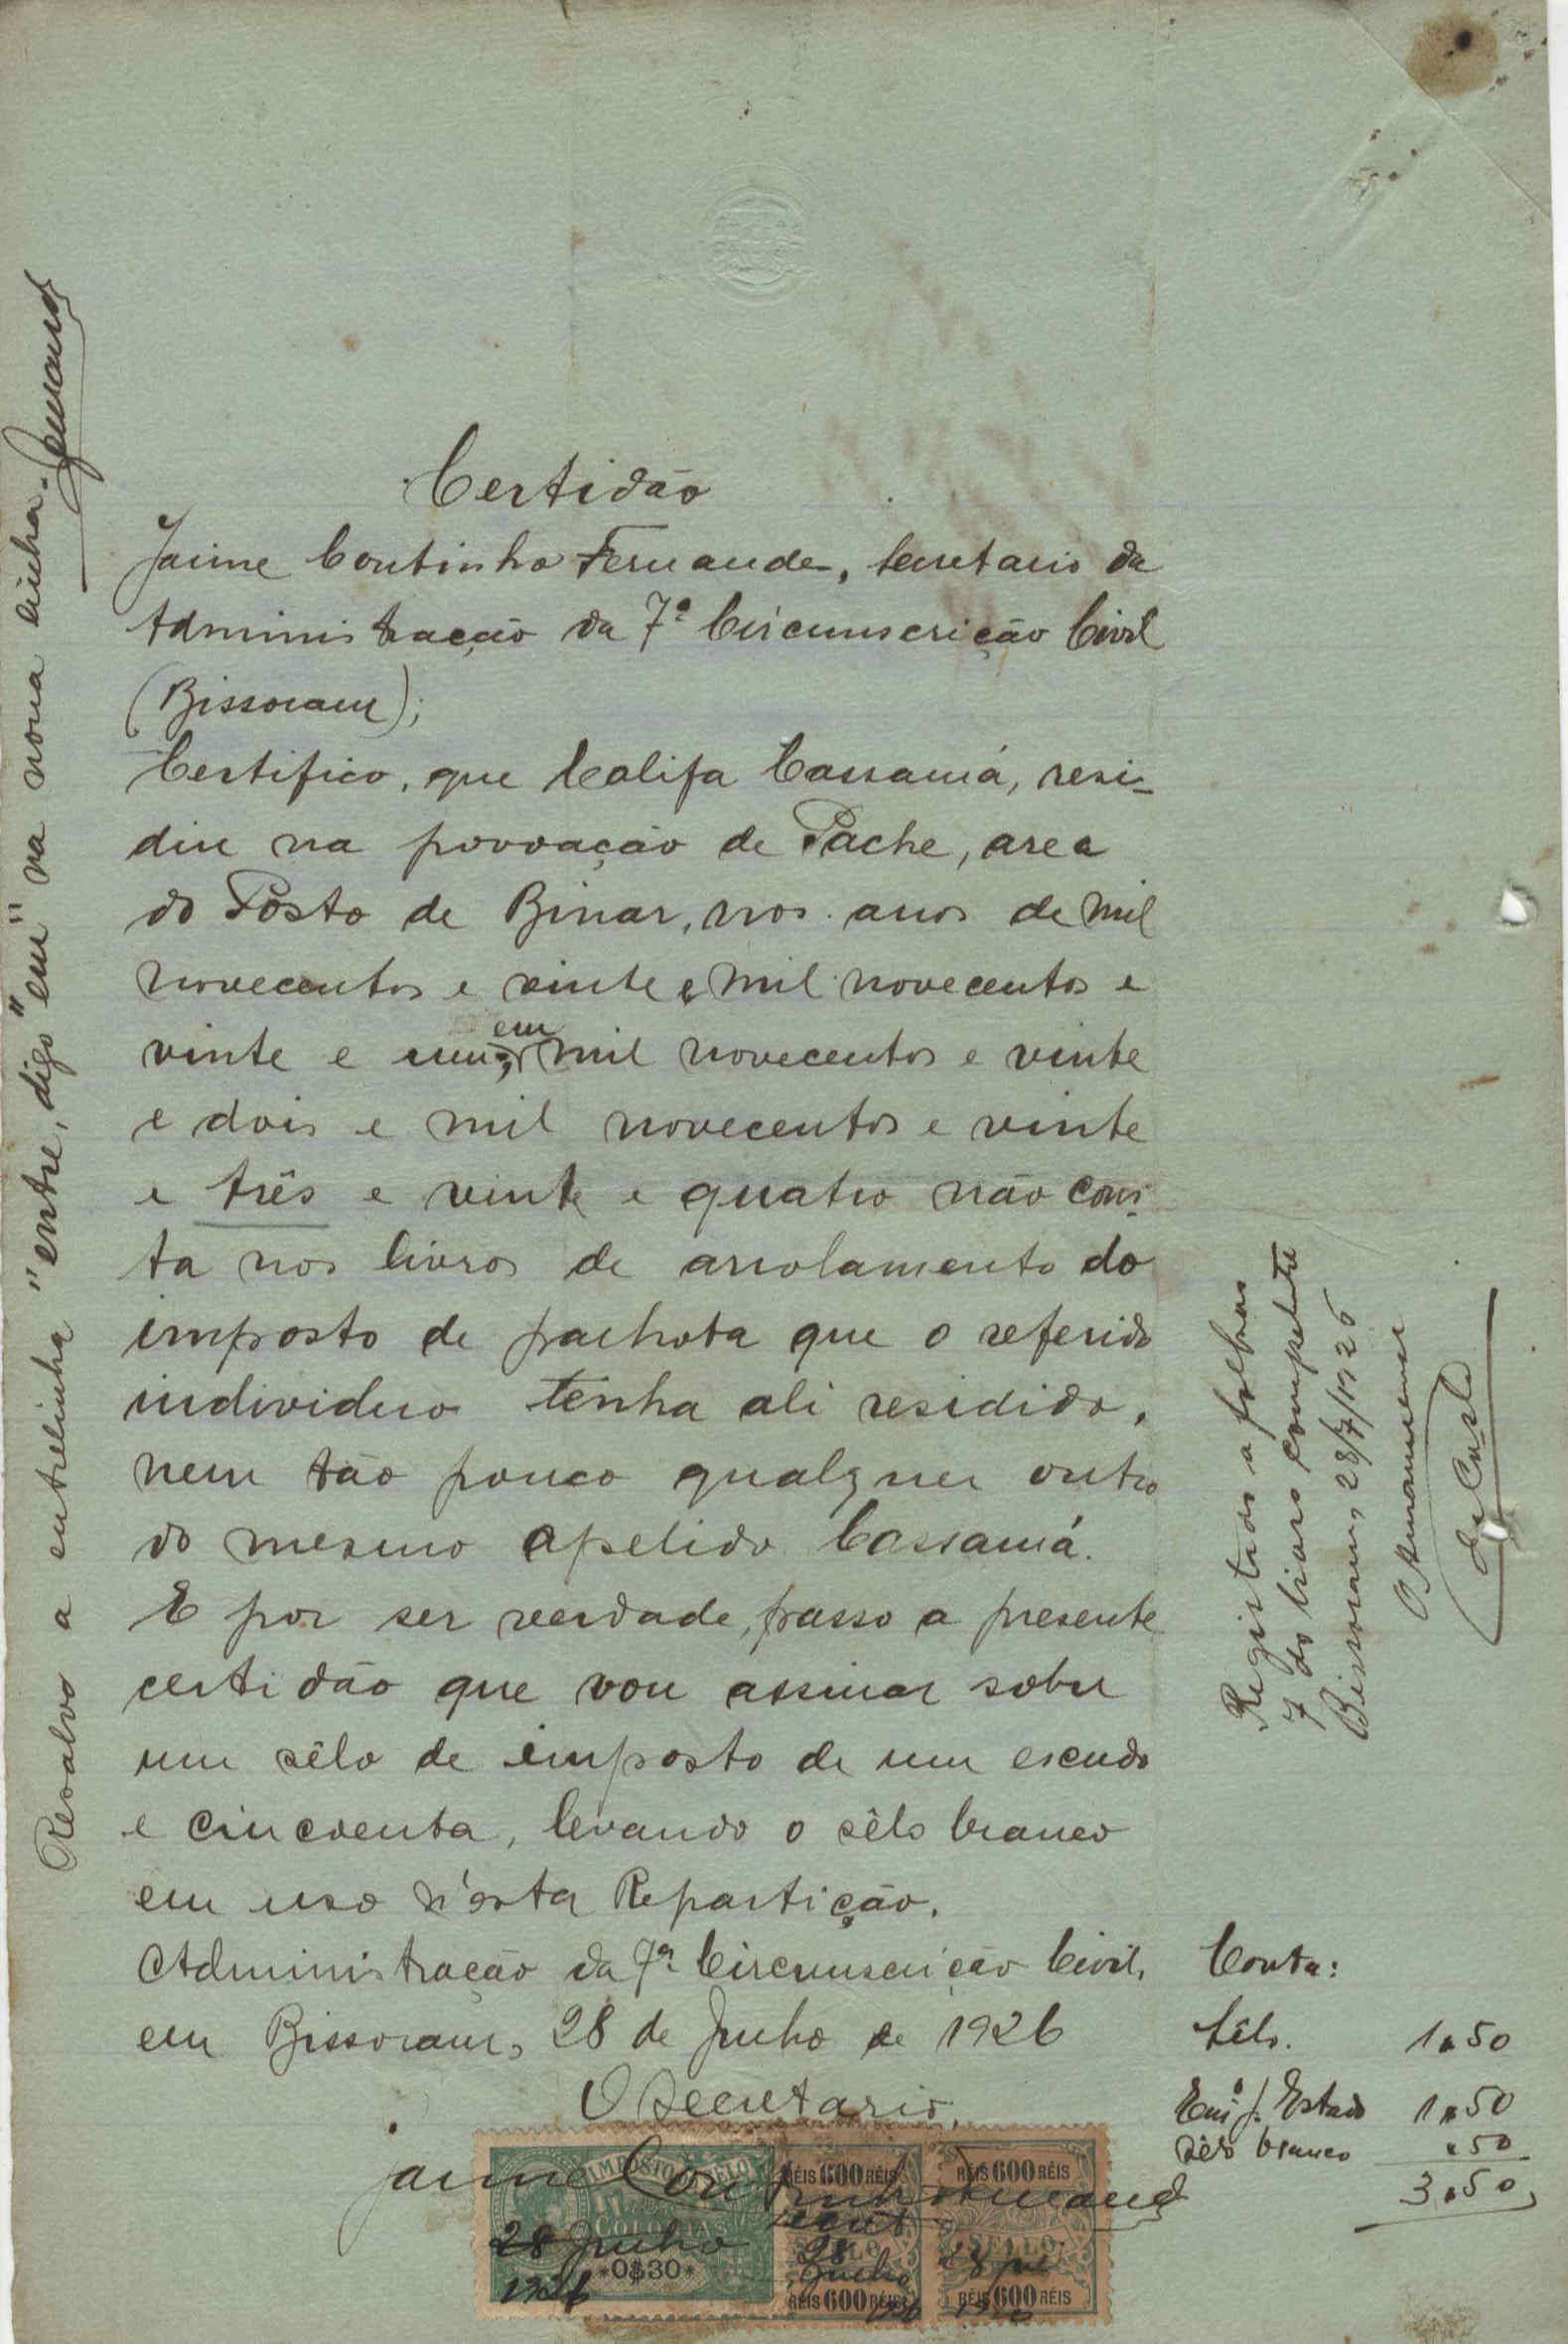 Certidão
Jaime Coutinho Fernandes, Secretario da
Administração da 7ª Circumscrição Civil
(Bissoram);
Certifico, que Califa Cassamá, resi-
diu na povoação de Pache, area
do Posto de Binar, nos anos de mil
novecentos e vinte e mil novecentos e
vinte e um; em mil novecentos e vinte
e dois e mil novecentos e vinte
e três e vinte e quatro não cons-
ta nos livros de arrolamento do
imposto de palhota que o referido
individuo tenha ali residido,
nem tão pouco qualquer outro
do mesmo apelido Cassamá.
E por ser verdade, passo a presente
certidão que vou assinar sobre
um sêlo de imposto de um escudo
e cincoenta, levando o sêlo branco
em uso n'esta Repartição.
Administração da 7ª Circumscrição Civil,
em Bissoram, 28 de Junho de 1926
O Secretario,
Jaime Coutinho Fernandes
IMPOSTO DO SELO
COLONIAS
*0$30*
28 Junho
1926
RÉIS 600 RÉIS
SELLO
28
Junho
RÉIS 600 RÉIS
RÉIS 600 RÉIS
SELLO
RÉIS 600 RÉIS
Resalvo a entrelinha "entre, digo "em" na nona linha. Fernandes
Registado a folhas
7 do livro competente
Bissoram, 28/7/1926
O Amanuense
Conta:
Sêlo. 1$50
Em. p. Estado 1$50
Sêlo branco $50
3$50